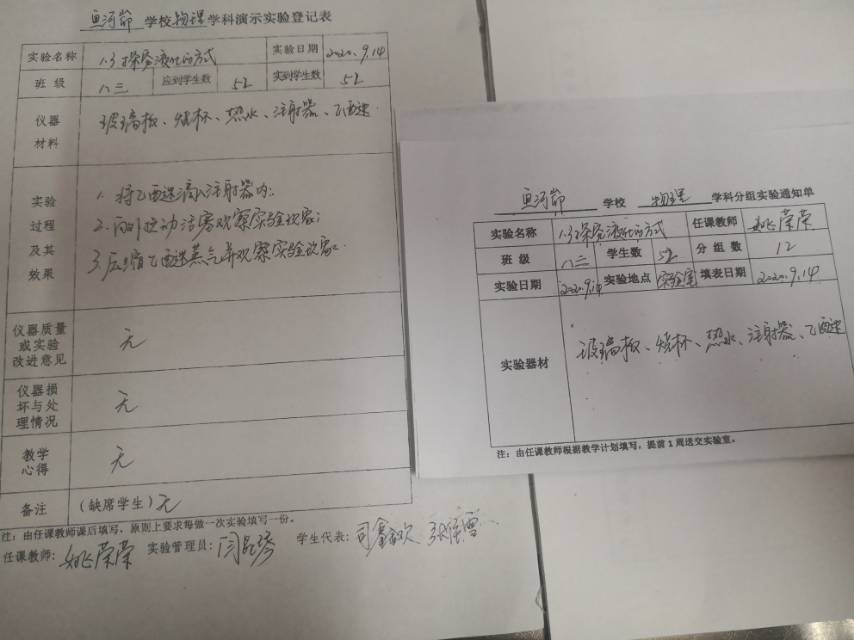 鱼河峁 学校 物理 学科演示实验登记表
实验名称 1.3探究液化的方式 实验日期 2020.9.14
班级 八三 应到学生数 52 实到学生数 52
仪器材料 玻璃板、烧杯、热水、注射器、乙醚
实验过程及其效果
1. 将乙醚滴入注射器内;
2. 向外拉动活塞观察实验现象;
3. 压缩乙醚蒸气并观察实验现象.
仪器质量或实验改进意见 无
仪器损坏与处理情况 无
教学心得 无
备注 (缺席学生) 无
注:由任课教师课后填写,原则上要求每做一次实验填写一份。
任课教师: 姚荣荣 实验管理员: 学生代表:
鱼河峁 学校 物理 学科分组实验通知单
实验名称 1.3探究液化的方式 任课教师 姚荣荣
班级 八三 学生数 52 分组数 12
实验日期 2020.9.14 实验地点 实验室 填表日期 2020.9.14
实验器材 玻璃板、烧杯、热水、注射器、乙醚
注:由任课教师根据教学计划填写,提前1周送交实验室。